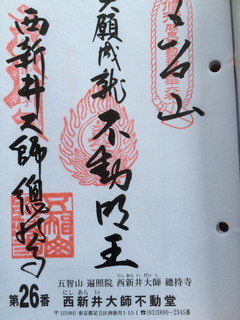 五智山
大願成就 不動明王
西新井大師 總持寺
五智山 遍照院 西新井大師 總持寺
にしあらいだいし
第26番 西新井大師不動堂
にし あらい
〒123-0841 東京都足立区西新井1-15-1 ☎(03)3890-2345番